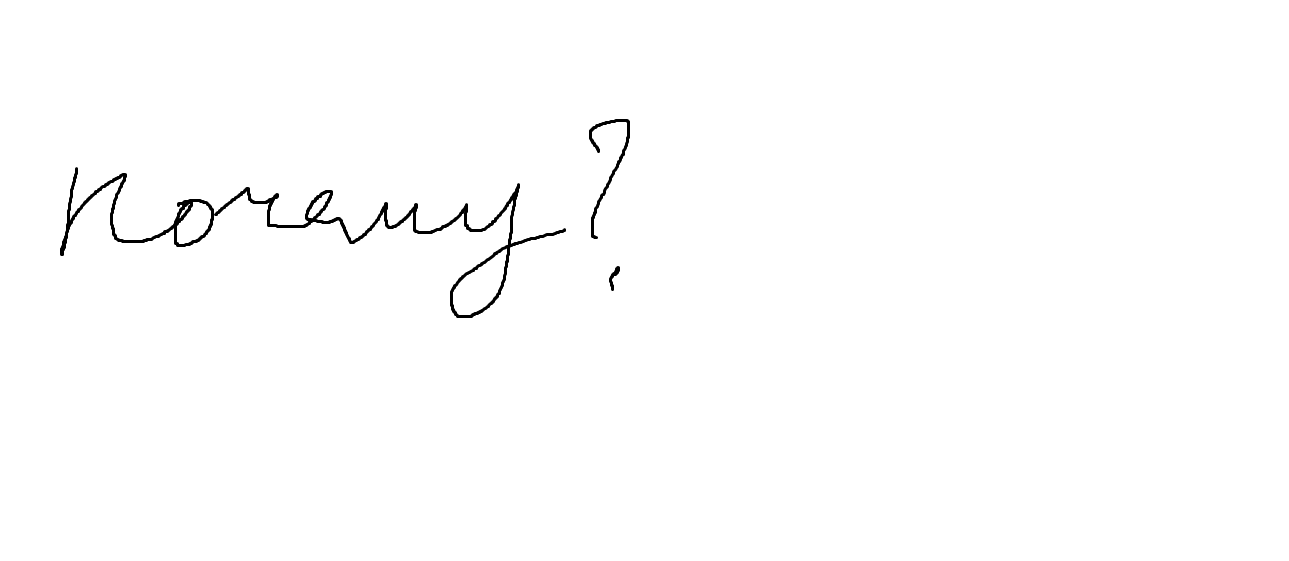 почему?